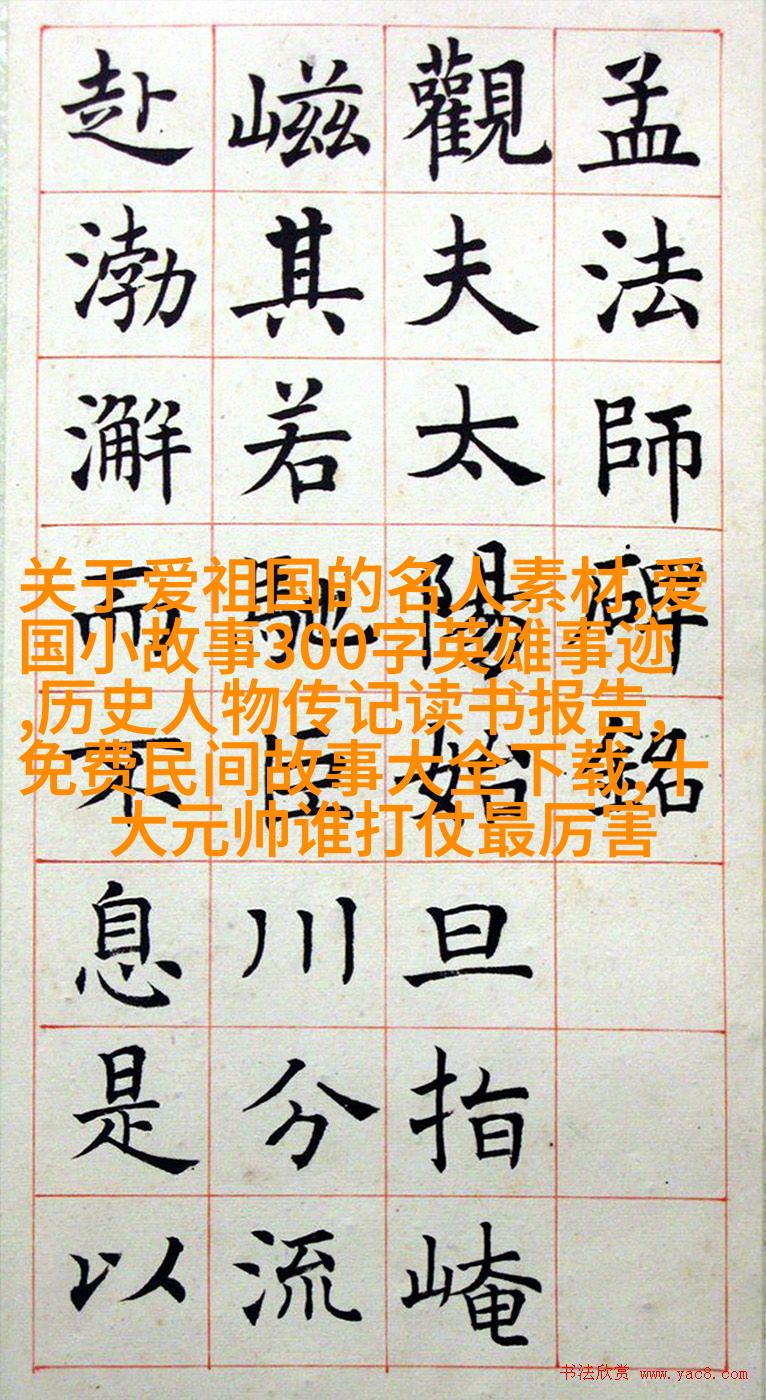 孟法師碑銘
觀夫太陽始旦指崦
嵫其若馳巨川分流
赴渤澥而不息是以
关于爱祖国的名人素材,爱
国小故事300字英雄事迹
,历史人物传记读书报告,
免费民间故事大全下载,十
大元帅谁打仗最厉害
书法欣赏 www.yac8.com